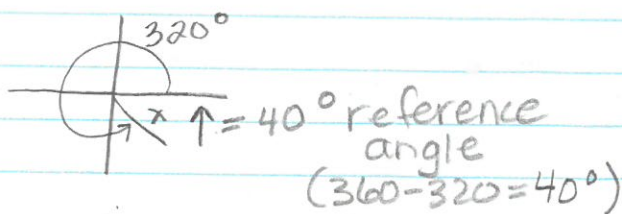 320°
x ↑ = 40° reference
angle
(360-320=40°)